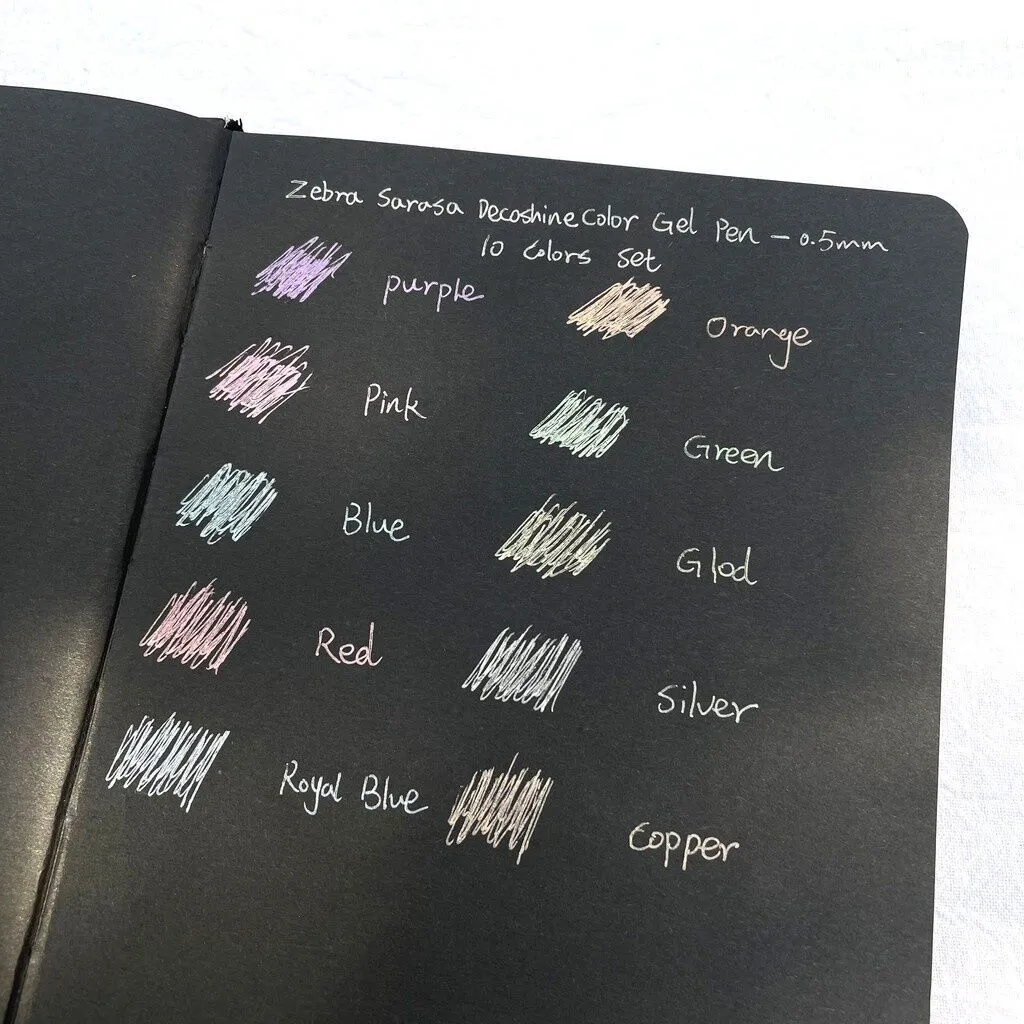 Zebra Sarasa Decoshine Color Gel Pen - 0.5mm
10 Colors set
purple
Orange
Pink
Green
Blue
Glod
Red
Silver
Royal Blue
Copper